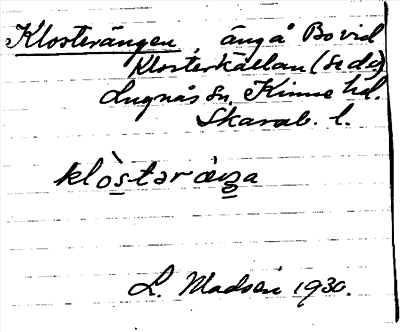 Klosterängen, äng å Bo vid
Klosterkällan (se d.o)
Lugnås sn. Kinne hd.
Skarab. l.
klòstəræŋa
L. Madsén 1930.